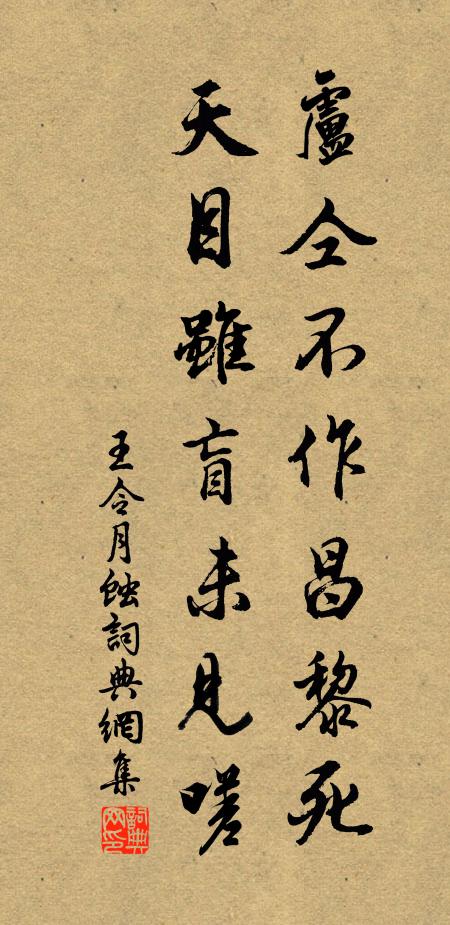 盧仝不作昌黎死
天目雖盲未見嗟
王令月蝕詞典網集
詞典網印